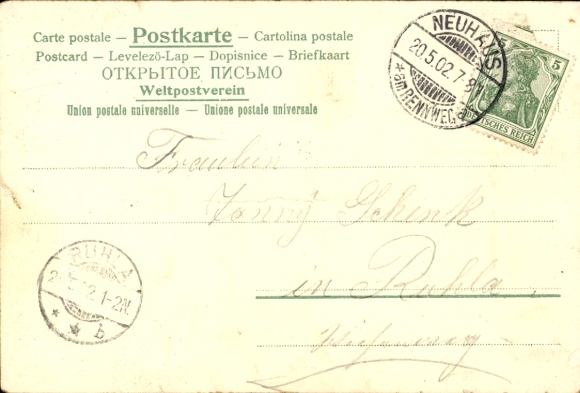 Carte postale – Postkarte – Cartolina postale
Postcard – Levelező-Lap – Dopisnice – Briefkaart
ОТКРЫТОЕ ПИСЬМО
Weltpostverein
Union postale universelle – Unione postale universale
NEUHAUS
20.5.02.7-8N.
* am RENNWEG
5
DEUTSCHES REICH
Fräulein
Fanny Schenk
in Ruhla
RUHLA
1-2N
* * b